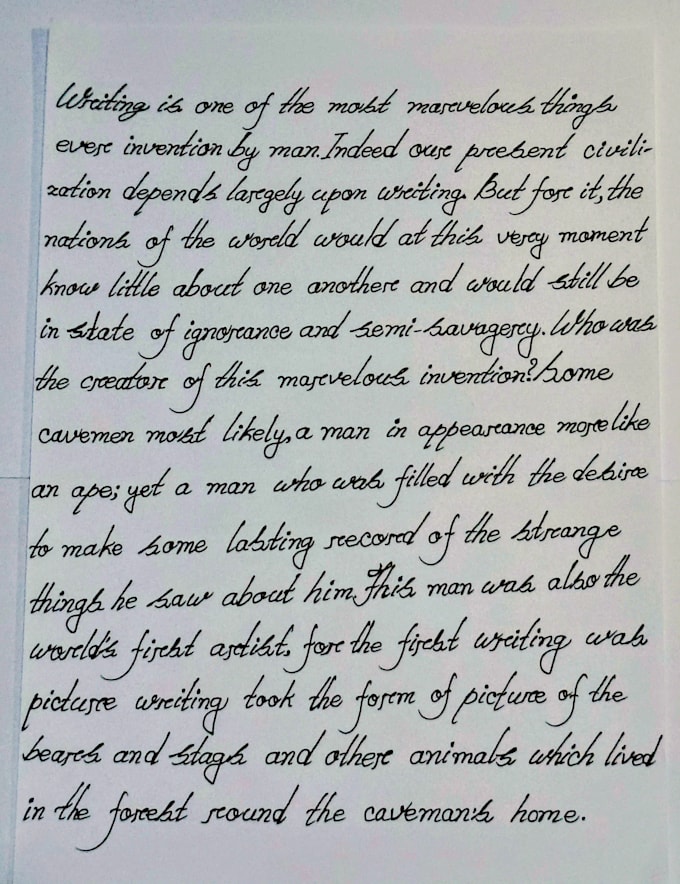 Writing is one of the most marvelous things
ever invention by man. Indeed our present civili-
zation depends largely upon writing. But for it, the
nations of the world would at this very moment
know little about one another and would still be
in state of ignorance and semi-savagery. Who was
the creator of this marvelous invention? Some
cavemen most likely, a man in appearance more like
an ape; yet a man who was filled with the desire
to make some lasting record of the strange
things he saw about him. This man was also the
world's first artist, for the first writing was
picture writing took the form of picture of the
bears and stags and other animals which lived
in the forest round the caveman's home.